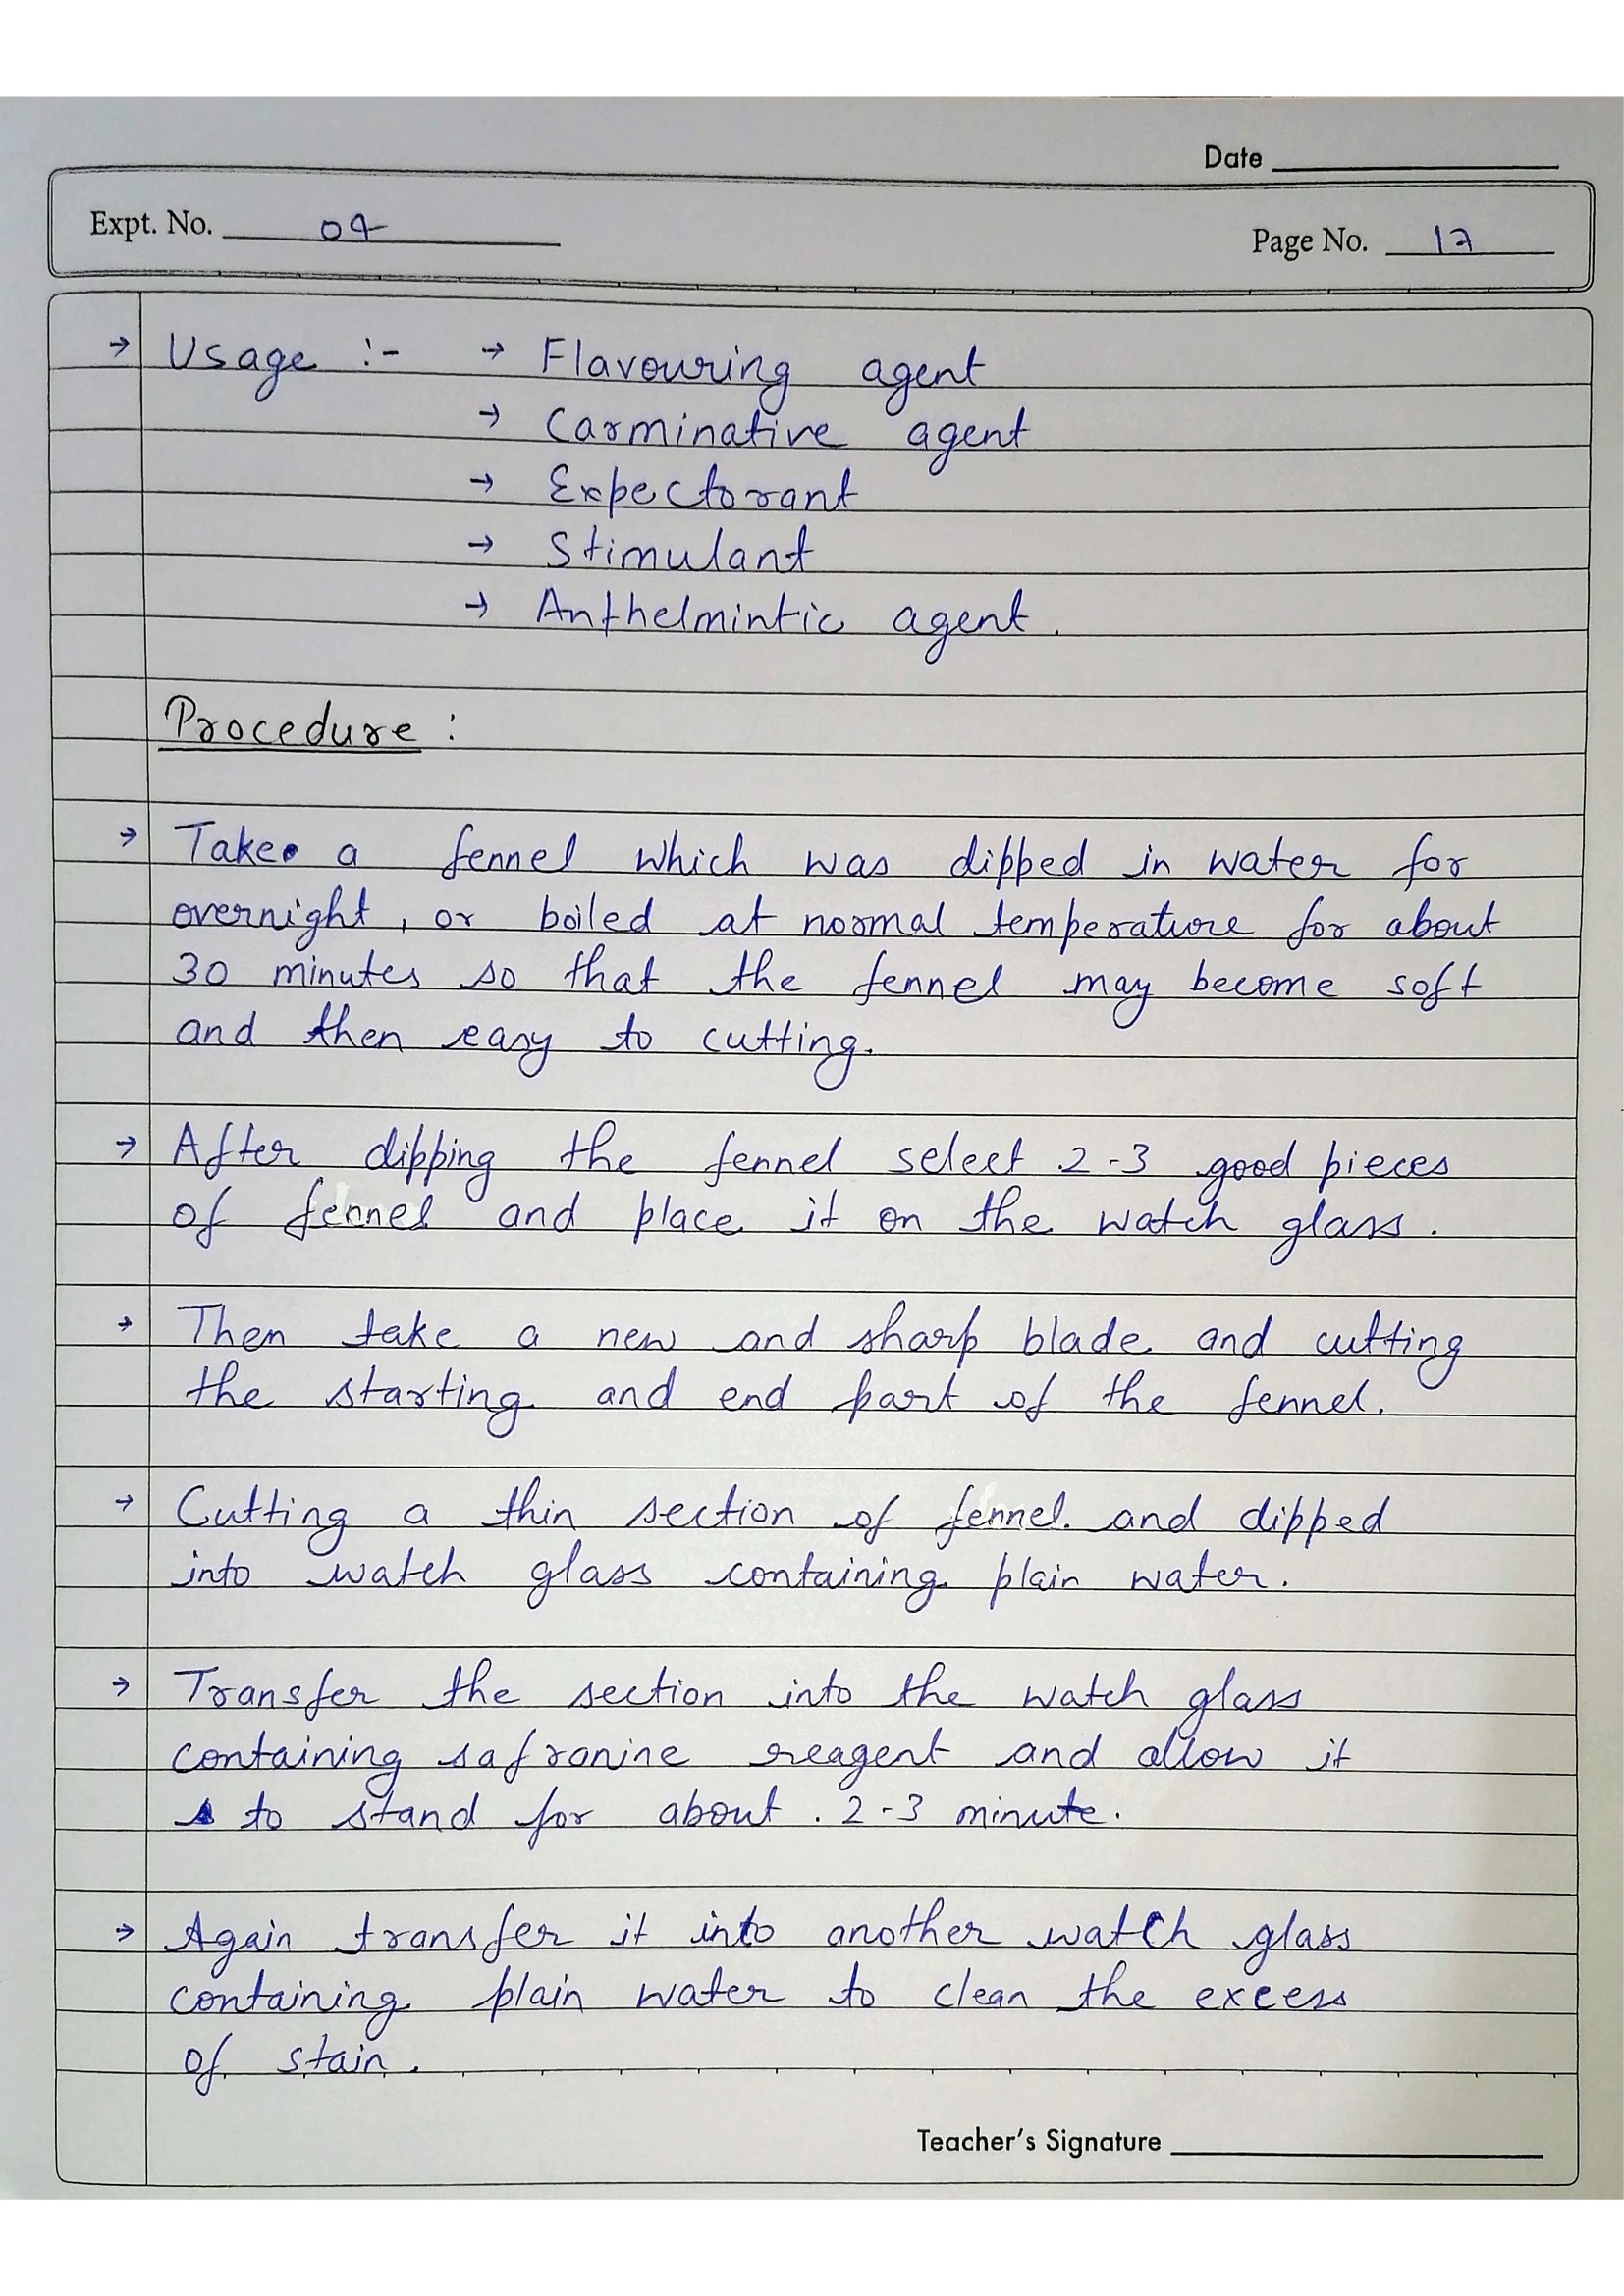 Date
Expt. No. 04
Page No. 17
→ Usage :- → Flavouring agent
→ Carminative agent
→ Expectorant
→ Stimulant
→ Anthelmintic agent.
Procedure :
→ Take a fennel which was dipped in water for
overnight, or boiled at normal temperature for about
30 minutes so that the fennel may become soft
and then easy to cutting.
→ After dipping the fennel select 2-3 good pieces
of fennel and place it on the watch glass.
→ Then take a new and sharp blade and cutting
the starting and end part of the fennel.
→ Cutting a thin section of fennel. and dipped
into watch glass containing plain water.
→ Transfer the section into the watch glass
containing safranine reagent and allow it
to stand for about . 2-3 minute.
→ Again transfer it into another watch glass
containing plain water to clean the excess
of stain.
Teacher's Signature